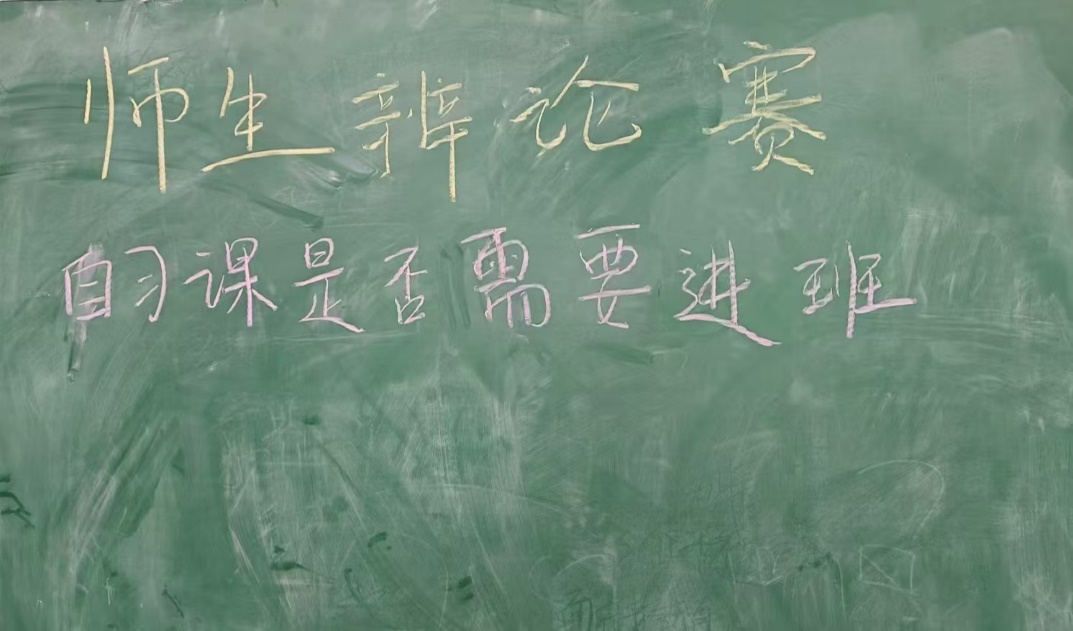 师生辨论赛
自习课是否需要进班